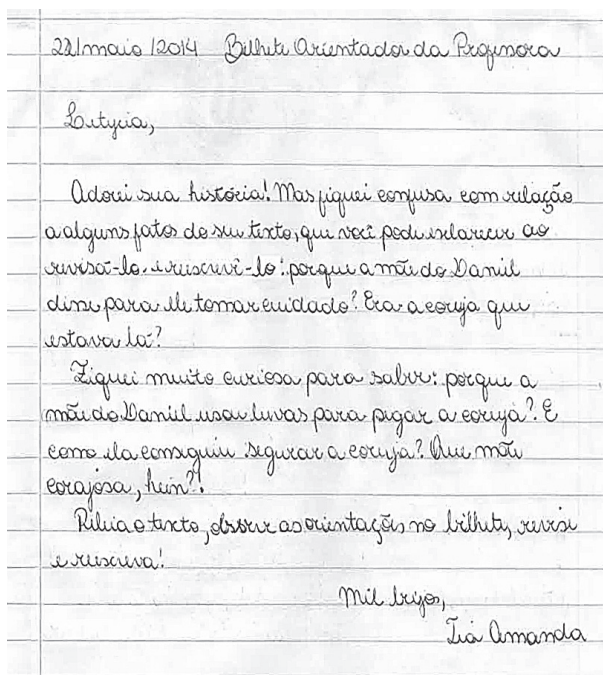 22/maio/2014 Bilhete Orientador da Professora
Letycia,
Adorei sua história! Mas fiquei confusa com relação
a alguns fatos do seu texto, que você pode esclarecer ao
revisá-lo e reescrevê-lo: porque a mãe do Daniel
disse para ele tomar cuidado? Era a coruja que
estava lá?
Fiquei muito curiosa para saber: porque a
mãe do Daniel usou luvas para pegar a coruja? E
como ela conseguiu segurar a coruja? Que mãe
corajosa, hein?!
Releia o texto, observe as orientações no bilhete, revise
e reescreva!
Mil beijos,
Tia Amanda